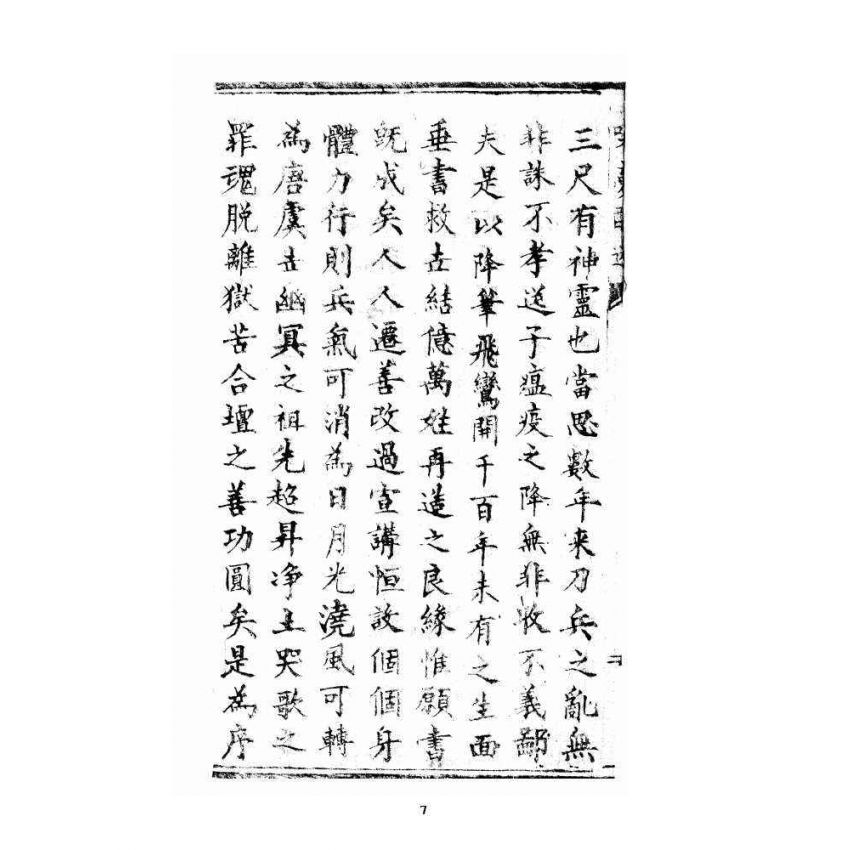 三尺有神靈也當思數年来刀兵之亂無
非誅不孝逆子瘟疫之降無非收不義鄙
夫是以降筆飛鸞開千百年未有之生面
垂書救古結億萬姓再造之良緣惟願書
既成矣人人遷善改過宣講恒設個個身
體力行則兵氣可消為日月光澆風可轉
為唐虞古幽冥之祖先超昇净土哭歌之
罪魂脱離獄苦合壇之善功圓矣是為序
7